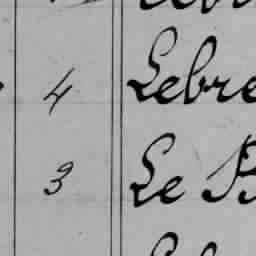 4 Lebre
3 Le B